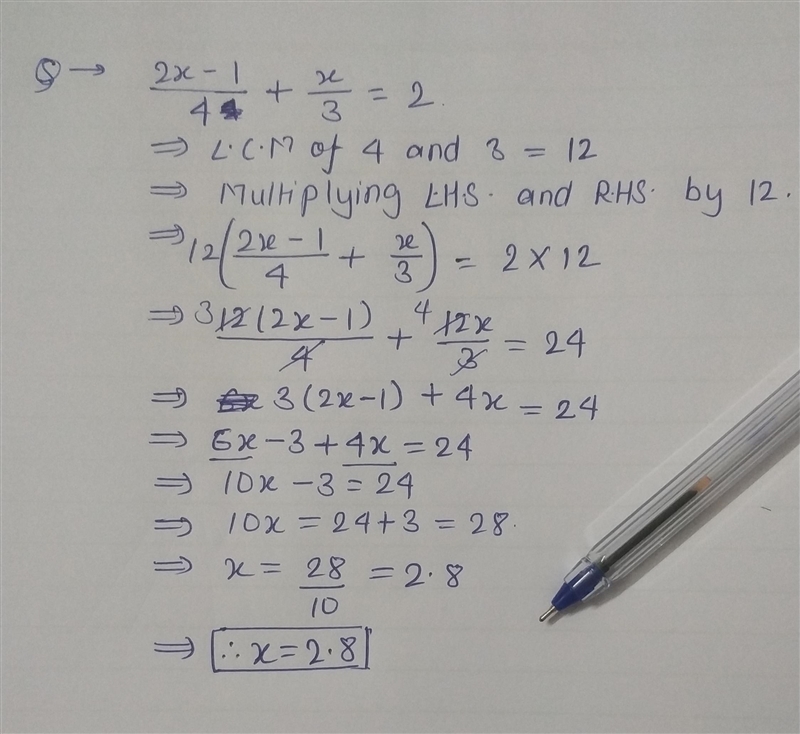 Q → (2x - 1)/4 + x/3 = 2.
⇒ L.C.M of 4 and 3 = 12
⇒ Multiplying L.H.S. and R.H.S. by 12.
⇒ 12((2x - 1)/4 + x/3) = 2 × 12
⇒ 3 12(2x - 1)/4 + 4 12x/3 = 24
⇒ 3(2x - 1) + 4x = 24
⇒ 6x - 3 + 4x = 24
⇒ 10x - 3 = 24
⇒ 10x = 24 + 3 = 28.
⇒ x = 28/10 = 2.8
⇒ ∴ x = 2.8